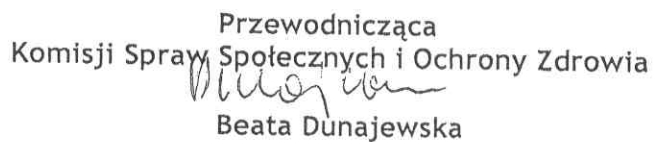 Przewodnicząca
Komisji Spraw Społecznych i Ochrony Zdrowia
Beata Dunajewska